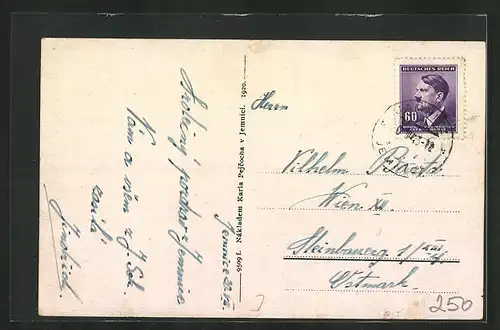 Srdečný pozdrav z Jemnice
Vám a všem z J. Sch.
zasílá
Jindřich.
Jemnice
9509 f. Nákladem Karla Pejčocha v Jemnici. 1920.
DEUTSCHES REICH
60
Herrn
Vilhelm
Wien XII.
Steinbauerg. 1/XII/4
Ostmark.
250